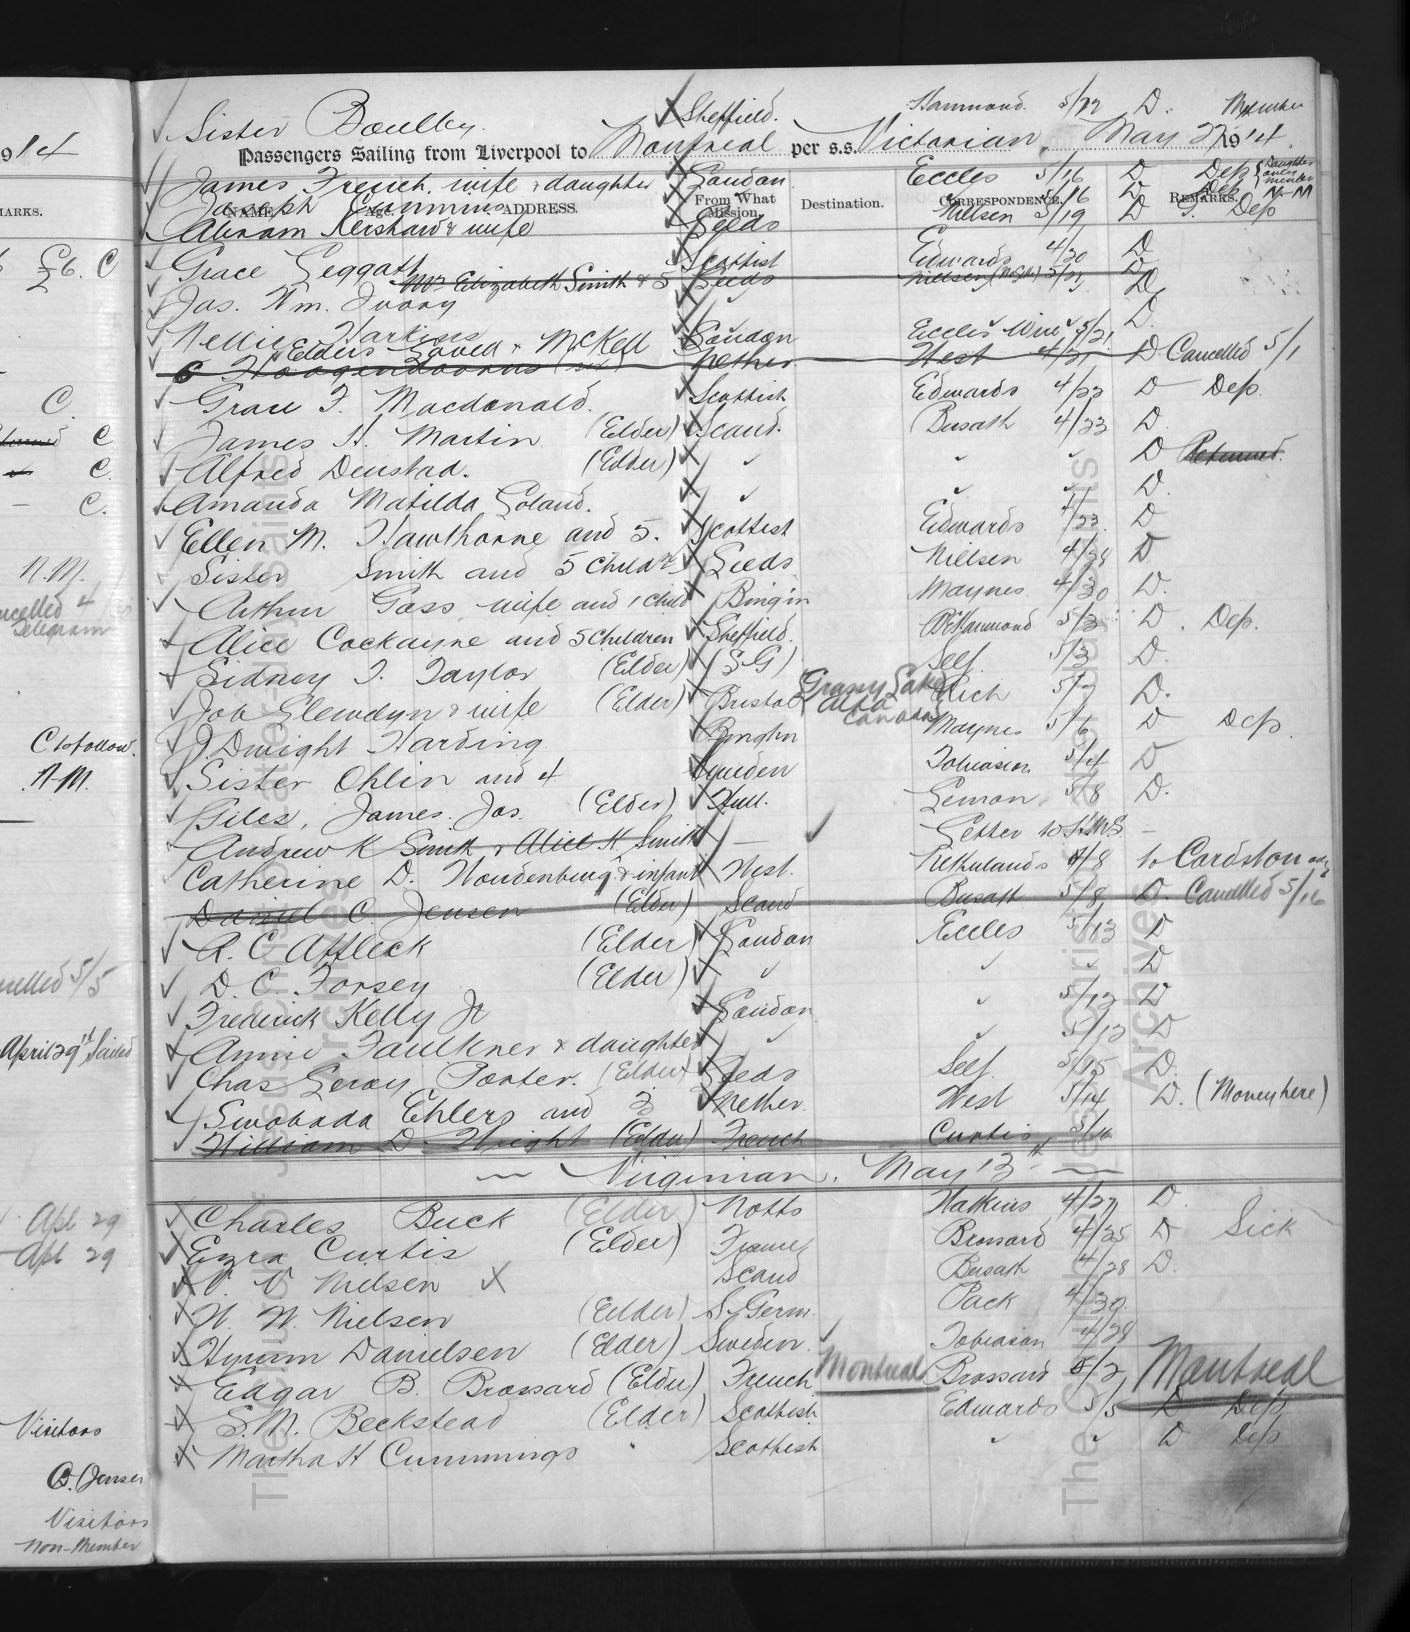 Sister Boulby. Sheffield. Hammond. 5/22 D. Member
Passengers Sailing from Liverpool to Montreal per s.s. Victorian, May 22 1914.
James French, wife & daughter London Eccles 5/16 D Dep
NAME. Age. ADDRESS. From What Mission. Destination. CORRESPONDENCE. REMARKS.
Joseph Cummins 5/16 D Dep N-M
Abram Kershaw & wife Leeds Nielsen 5/19 D Dep
Grace Leggatt Scottish Edwards 4/20 D
Mrs Elizabeth Smith & 5 Leeds
Jas. Wm. Ivory D
Nellie Harkins D
Elders Lovell & McKell London Eccles Wire 5/21
6 Hoogendoorns (six) Nether West 4/21 D Cancelled 5/1
Grace F. Macdonald. Scottish Edwards 4/22 D Dep.
James H. Martin (Elder) Scand. Busath 4/23 D.
Alfred Denstad. (Elder) " " " D Returned.
Amanda Matilda Soland. " " " D.
Ellen M. Hawthorne and 5. Scottish Edwards 4/23 D
Sister Smith and 5 Childn Leeds Nielsen 4/28 D
Arthur Gass wife and 1 child Bingm Maynes 4/30 D.
Alice Cockayne and 5 Children Sheffield. Hammond 5/3 D. Dep.
Sidney T. Taylor (Elder) (S G) Self. 5/3 D.
Job Llewelyn & wife (Elder) Bristol Grassy Lake Alta Canada Rich 5/7 D.
J. Dwight Harding Bmghm Maynes 5/6 D Dep.
Sister Ohlin and 4 Sweden Tobiason 5/4 D
Giles, James Jos. (Elder) Hull. Lemon 5/8 D.
Andrew K Smith & Alice H Smith — Letter to —
Catherine D. Houdenburg & infant West. Netherlands 5/8 to Cardston
Daniel C Jensen (Elder) Scand Busath 5/8 D. Cancelled 5/16
A. C Affleck (Elder) London Eccles 5/13 D
D. C. Forsey (Elder) " " " D
Frederick Kelly Jr London " 5/12 D
Annie Faulkner & daughter " " 5/13 D
Chas Leroy Porter. (Elder) Leeds Self 5/15 D.
Swobada Ehlers and 3 Nether. West 5/14 D. (Money here)
William D Wright (Elder) French Curtis 5/16
— Virginian. May 13th —
Charles Buck (Elder) Notts Watkins 4/27 D.
Ezra Curtis (Elder) French Brossard 4/25 D Sick
P. V Nielsen X Scand Busath 4/28 D.
N. W. Nielsen (Elder) S. Germ. Pack 4/30
Hyrum Danielsen (Elder) Sweden. Tobiason 4/28
Edgar B. Brossard (Elder) French Montreal Brossard 5/2 Montreal
S. M. Beckstead (Elder) Scottish Edwards 5/5 D Dep
Martha H Cummings " Scottish " " D Dep
914
MARKS.
£6. C
C.
C
C.
— C.
N.M.
Cancelled 4
Telegram
C to follow.
N.M.
Cancelled 5/5
April 29th Sailed
Apl 29
Apl 29
Visitors
Visitors
Non-Member